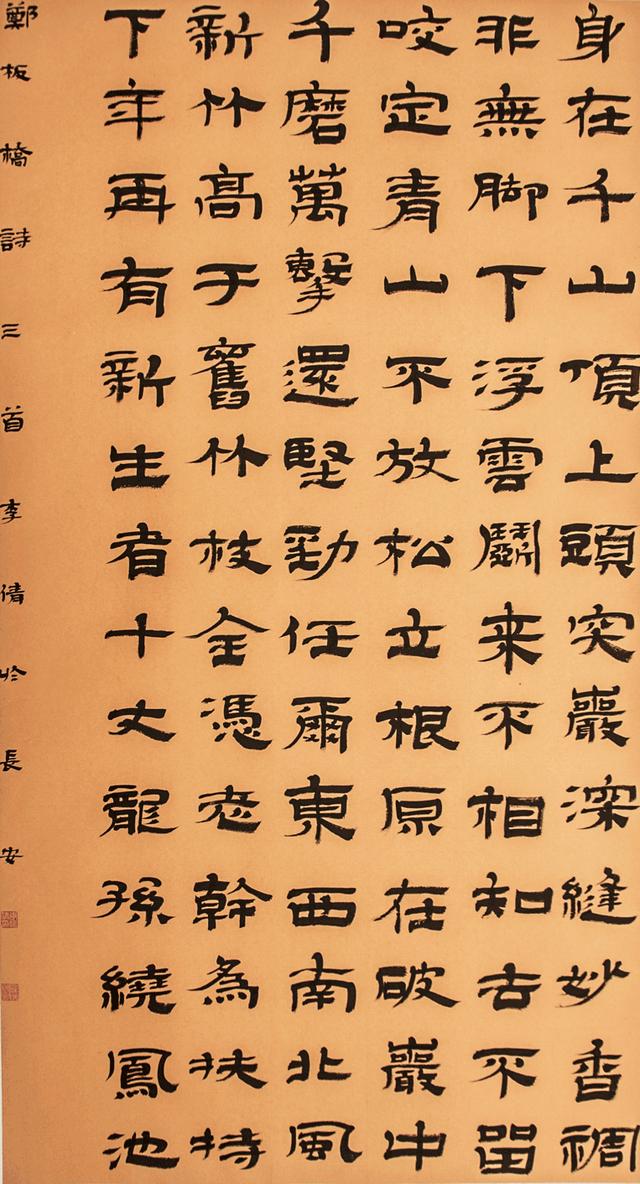 身在千山頂上頭突巖深縫妙香稠
非無脚下浮雲鬧来不相知去不留
咬定青山不放松立根原在破巖中
千磨萬擊還堅勁任爾東西南北風
新竹高于舊竹枝全憑老幹為扶持
下年再有新生者十丈龍孫繞鳳池
鄭板橋詩三首李倩於長安